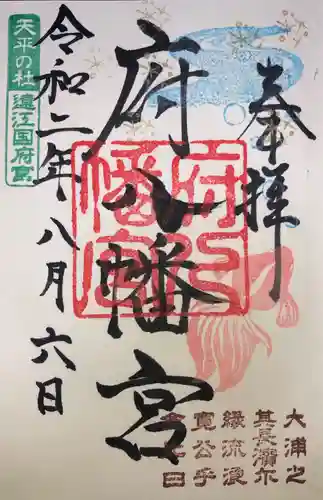 奉拝
府八幡宮
府八幡宮
令和二年八月六日
天平の杜 遠江国府宮
大浦之
其長濱尓
縁流浪
寛公乎
日